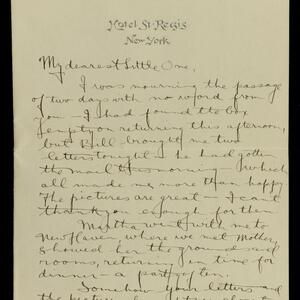 Hotel St. Regis
New York
My dearest Little One,
I was mourning the passage
of two days with no word from
you — I had found the box
empty on returning this afternoon,
but Bill brought me two
letters tonight — he had gotten
the mail this morning which
all made me more than happy
The pictures are great — I can't
thank you enough for them
Martha went with me to
New Haven, where we met Mother
& showed her the grounds and
rooms, returning in time for
dinner — a party of ten.
Somehow your letters and
the pictures